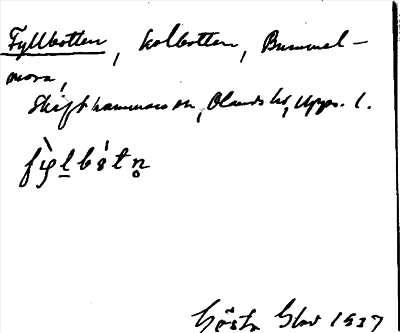 Fyllbotten, kolbotten, Bummel-
mora,
Skifthammaren, Olands hd, Uppr. l.
fỳl̲bótn̥
Gösta 1937